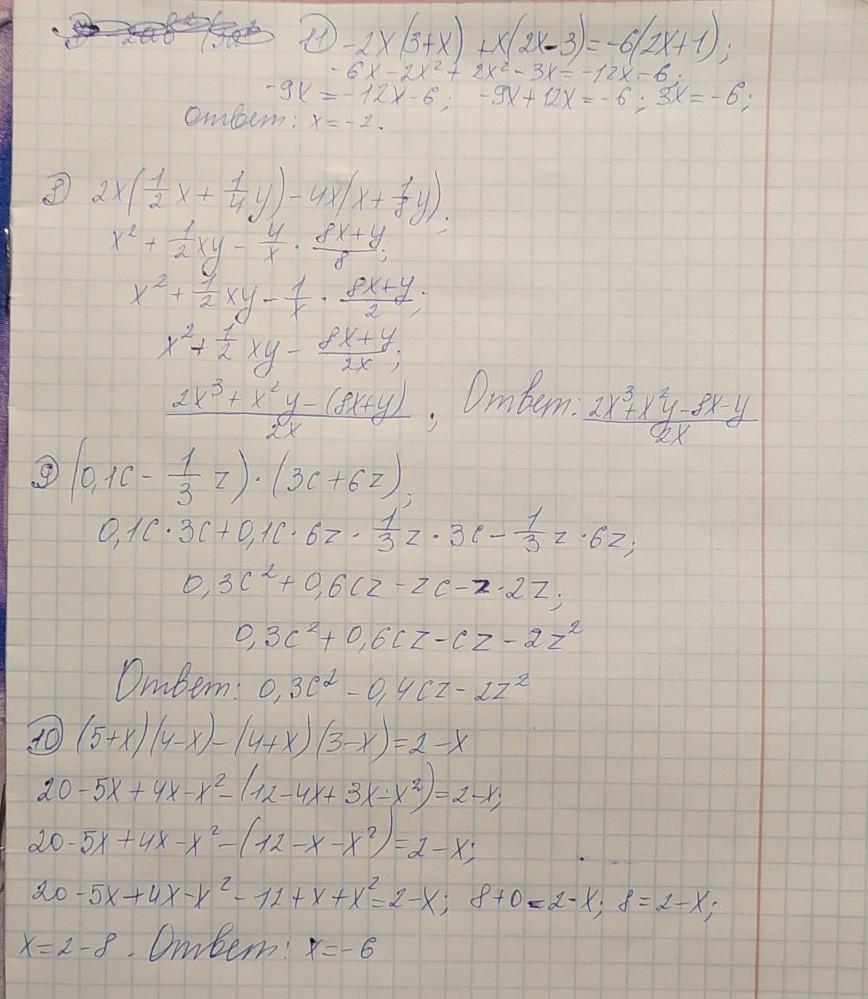 11) -2x(3+x) + x(2x-3) = -6(2x+1);
-6x - 2x² + 2x² - 3x = -12x - 6;
-9x = -12x - 6; -9x + 12x = -6; 3x = -6;
Ответ: x = -2.
8) 2x(1/2 x + 1/4 y) - 4x(x + 1/8 y);
x² + 1/2 xy - 4/x · (8x+y)/8;
x² + 1/2 xy - 1/x · (8x+y)/2;
x² + 1/2 xy - (8x+y)/(2x);
(2x³ + x²y - (8x+y))/(2x); Ответ: (2x³+x²y-8x-y)/(2x)
9) (0,1c - 1/3 z) · (3c+6z);
0,1c · 3c + 0,1c · 6z - 1/3 z · 3c - 1/3 z · 6z;
0,3c² + 0,6cz - zc - z · 2z;
0,3c² + 0,6cz - cz - 2z²
Ответ: 0,3c² - 0,4cz - 2z²
10) (5+x)(4-x) - (4+x)(3-x) = 2-x
20 - 5x + 4x - x² - (12 - 4x + 3x - x²) = 2-x;
20 - 5x + 4x - x² - (12 - x - x²) = 2-x;
20 - 5x + 4x - x² - 12 + x + x² = 2-x; 8+0 = 2-x; 8 = 2-x;
x = 2-8. Ответ: x = -6